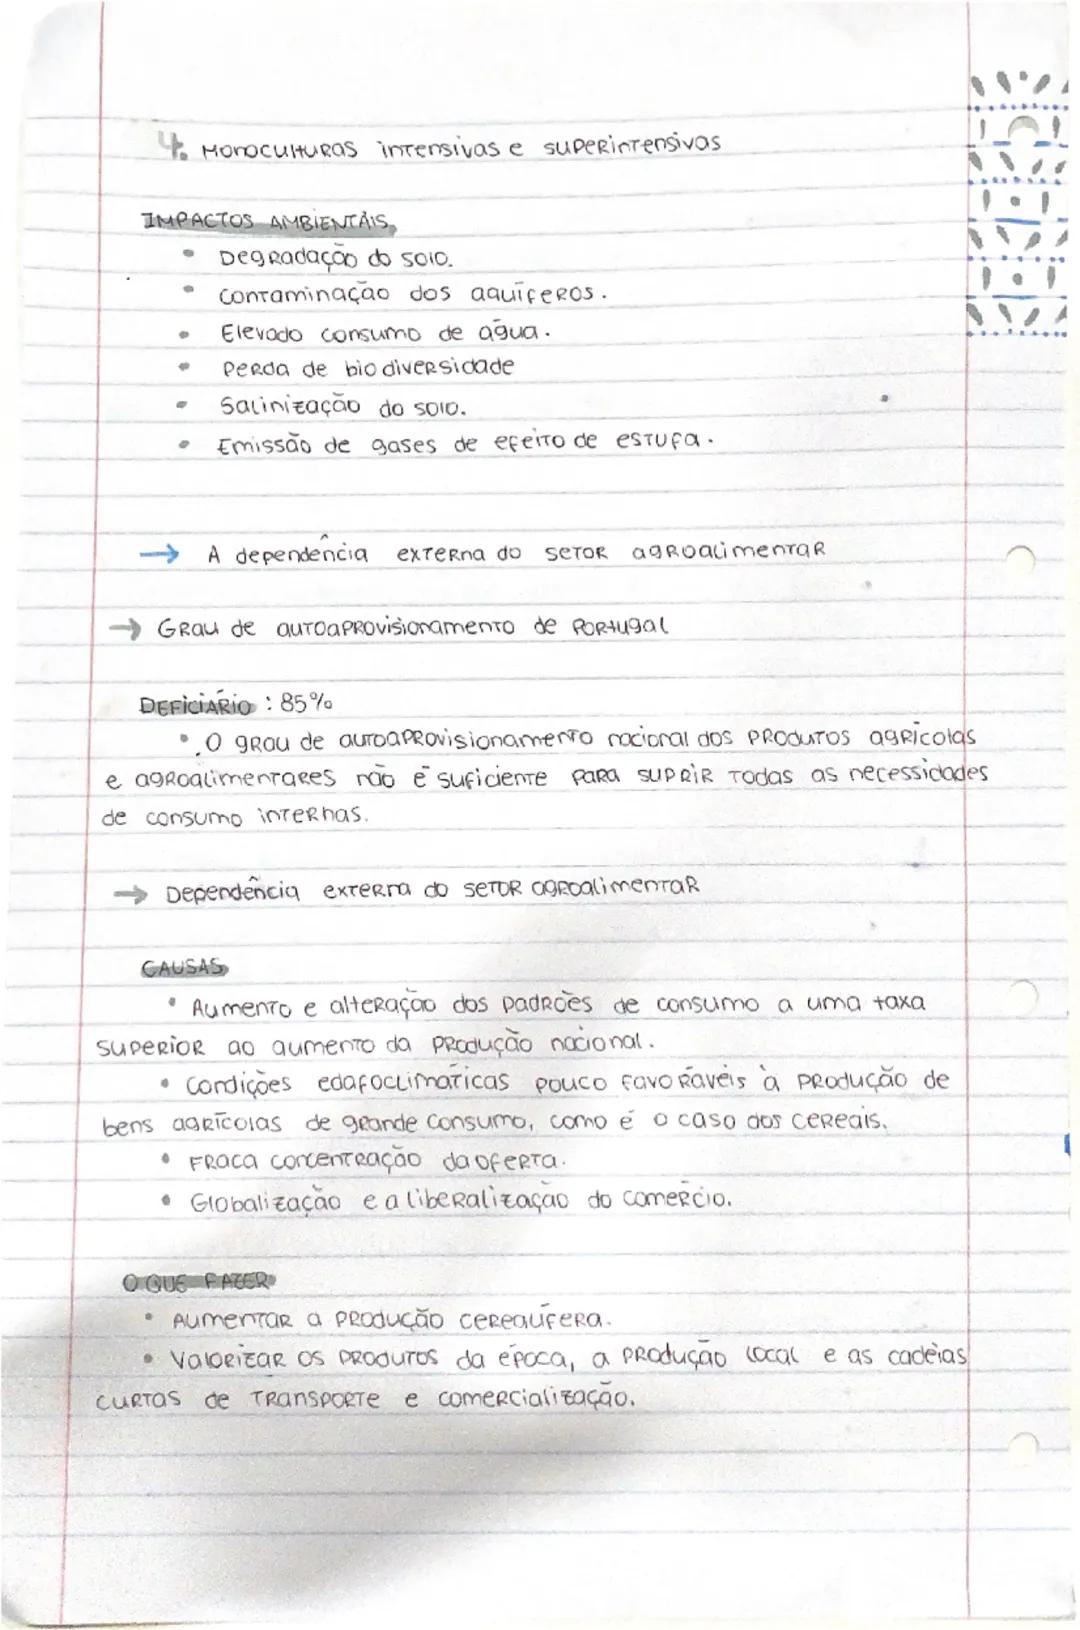 4. Monoculturas intensivas e superintensivas
IMPACTOS AMBIENTAIS
• Degradação do solo.
• Contaminação dos aquíferos.
• Elevado consumo de água.
• Perda de biodiversidade
• Salinização do solo.
• Emissão de gases de efeito de estufa.
→ A dependência externa do setor agroalimentar
→ Grau de autoaprovisionamento de Portugal
DEFICIÁRIO : 85%
• O grau de autoaprovisionamento nacional dos produtos agrícolas
e agroalimentares não é suficiente para suprir todas as necessidades
de consumo internas.
→ Dependência externa do setor agroalimentar
CAUSAS
• Aumento e alteração dos padrões de consumo a uma taxa
superior ao aumento da produção nacional.
• Condições edafoclimáticas pouco favoráveis à produção de
bens agrícolas de grande consumo, como é o caso dos cereais.
• Fraca concentração da oferta.
• Globalização e a liberalização do comércio.
O QUE FAZER
• Aumentar a produção cerealífera.
• Valorizar os produtos da época, a produção local e as cadeias
curtas de transporte e comercialização.